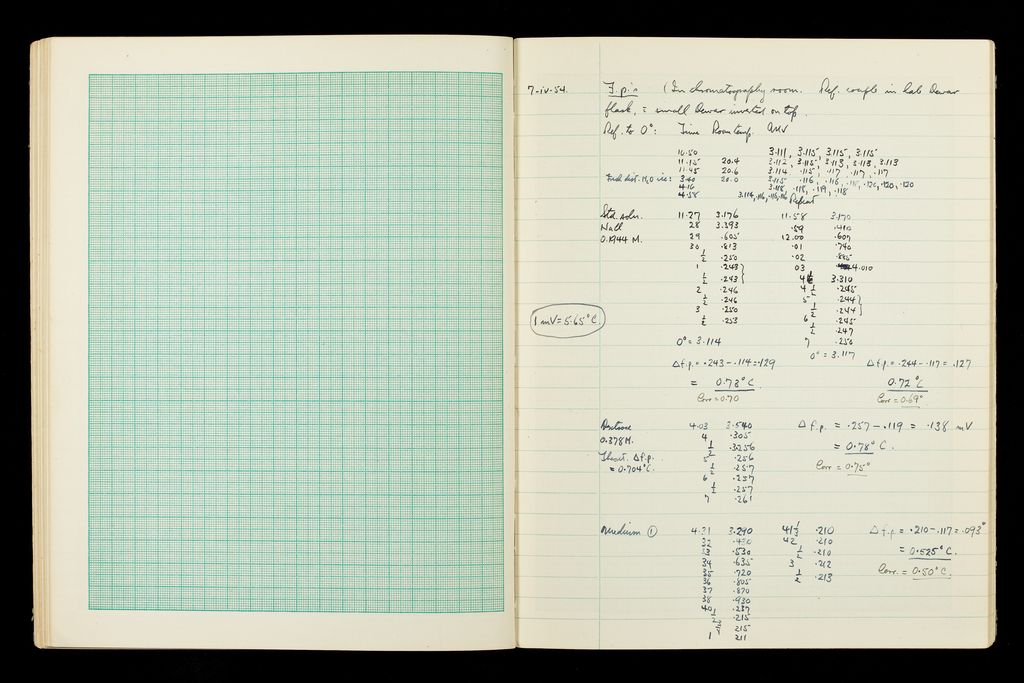 7-iv-54. F.p.'s (In chromatography room. Ref. couple in lab Dewar
flask, = small Dewar inverted on top.
Ref. to 0°: Time Room temp. QMV
10.50 3.111, 3.115, 3.115, 3.115
11.15 20.4 3.112, 3.115, 3.113, 3.113, 3.113
11.45 20.6 3.114 .115, .117, .117, .117
Fresh dist. H2O ice: 3.40 20.0 3.115 .116, .116, .120, .120
4.16 3.118, .118, .119, .118
4.58 3.114, .116, .116, .116
Repeat
Std. soln. 11.27 3.176 11.58 3.170
NaCl 28 3.393 .59 .410
0.1944 M. 29 .605 12.00 .607
30 .813 .01 .790
½ .250 .02 .885
1 .248 03 4.010
½ .243 4 3.310
2 .246 4 ½ .245
½ .246 5 .244
3 .250 ½ .244
½ .253 6 .245
½ .247
0° = 3.114 7 .250
0° = 3.117
1 mV = 5.65°C.
Δ f.p. = .243 - .114 = .129 Δ f.p. = .244 - .117 = .127
= 0.73°C. 0.72°C
Corr = 0.70 Corr = 0.69°
Dextrose 4.03 3.540 Δ f.p. = .257 - .119 = .138 mV
0.378 M. 4 .305
½ 3.256 = 0.78°C.
Theoret. Δ f.p. 5 .256
= 0.704°C. ½ .257 Corr = 0.75°
6 .257
½ .257
7 .261
Medium ① 4.31 3.290 41½ .210 Δ f.p. = .210 - .117 = .093°
32 .430 42 .210
33 .530 ½ .210 = 0.525°C.
34 .635 3 .212
35 .720 ½ .213 Corr. = 0.50°C.
36 .805
37 .870
38 .930
40 .237
½ .215
¾ 215
1 211